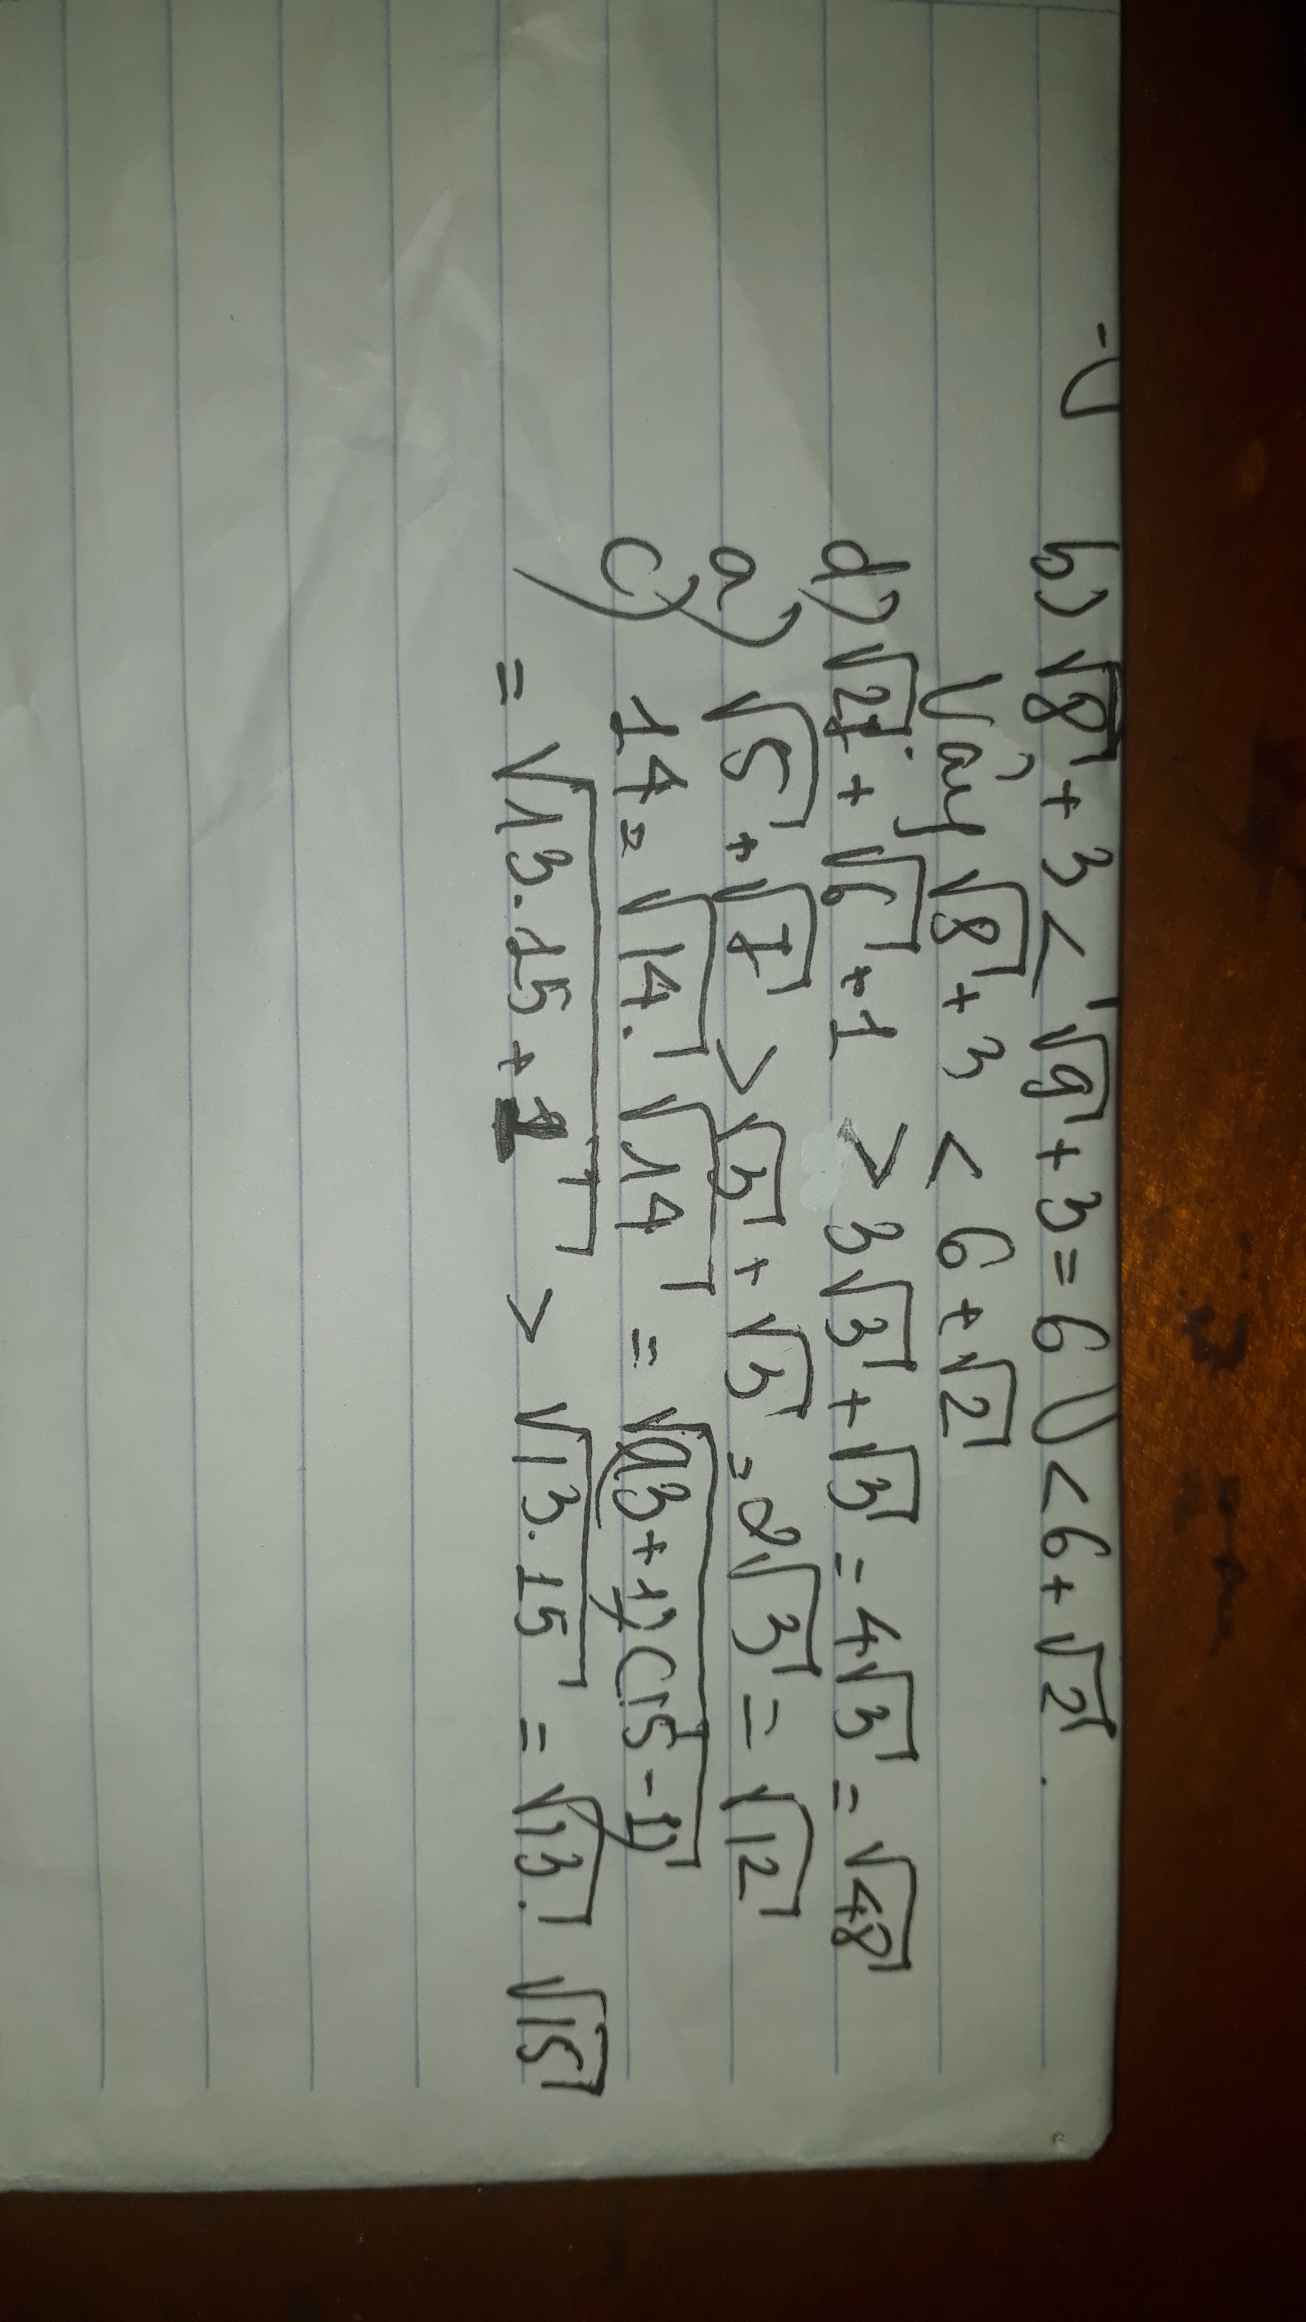 b) √8 + 3 < √9 + 3 = 6 < 6 + √2.
Vậy √8 + 3 < 6 + √2
d) √27 + √6 + 1 > 3√3 + √3 = 4√3 = √48
a) √5 + √7 > √3 + √3 = 2√3 = √12
c) 14 = √14 . √14 = √(13+1)(15-1)
= √13.15 + 1 > √13.15 = √13 . √15